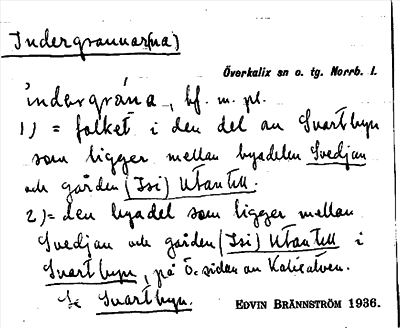 Indergrannar(na)
Överkalix sn o. tg. Norrb. l.
indergrána, bf. m. pl.
1) = folket i den del av Svartbyn
som ligger mellan byadelen Svedjan
och gården (Isi) Utantill.
2) = den byadel som ligger mellan
Svedjan och gården (Isi) Utantill i
Svartbyn, på Ö. sidan av Kalixälven.
Se Svartbyn.
EDVIN BRÄNNSTRÖM 1936.